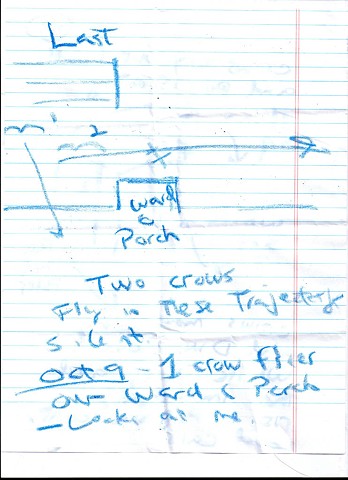 Last
1
2
Ward
Porch
Two crows
Fly in These Trajectory
Oct 9 - 1 crow flies
our Ward & Porch
- Looks at me.